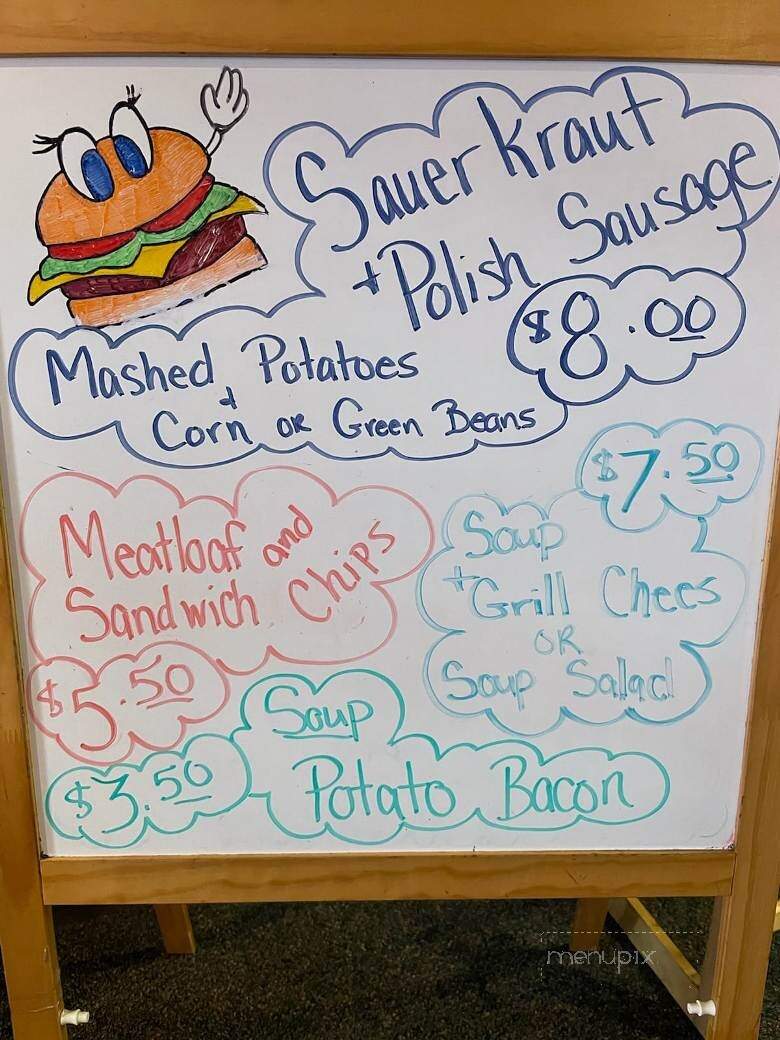 Sauer Kraut
+ Polish Sausage
$8.00
Mashed Potatoes
+
Corn or Green Beans
$7.50
Soup
+ Grill Chees
OR
Soup Salad
Meatloaf and
Sandwich Chips
$5.50
Soup
$3.50
Potato Bacon
menupix